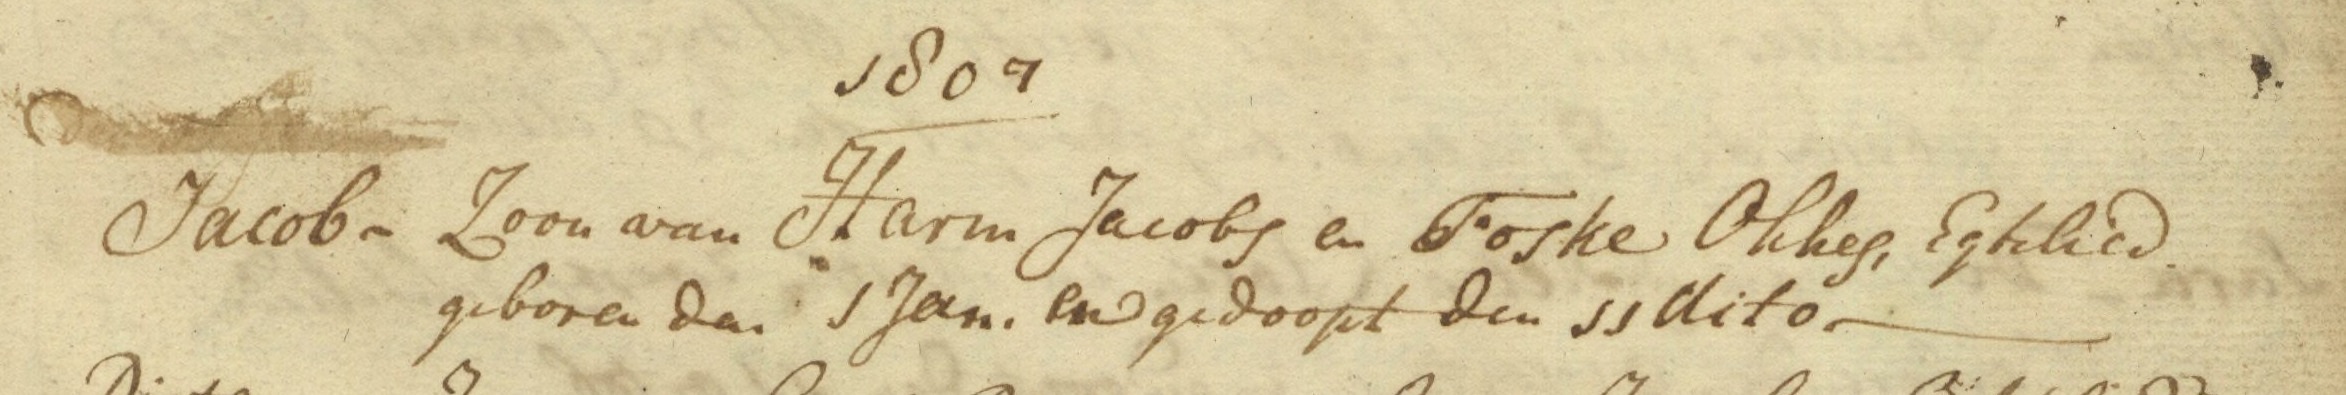 1807
Jacob - Zoon van Harm Jacobs en Foske Okkes, Egtelied.
geboren den 1 Jan. en gedoopt den 11 dito